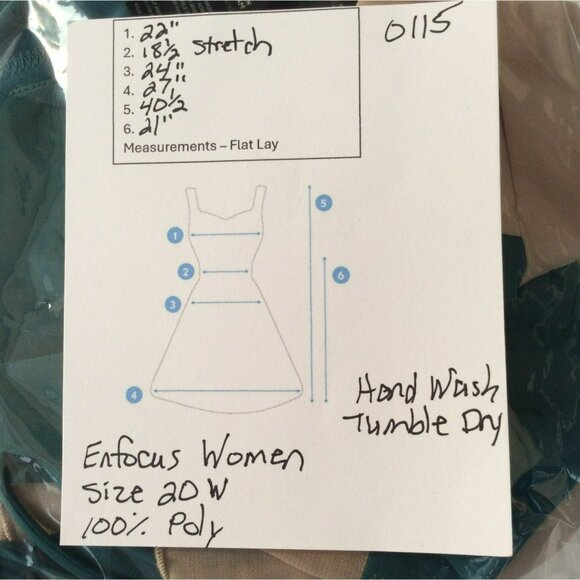 1. 22"
2. 18½ stretch
3. 24"
4. 27"
5. 40½
6. 21"
Measurements – Flat Lay
0115
1
2
3
4
5
6
Hand Wash
Tumble Dry
Enfocus Women
Size 20W
100% Poly